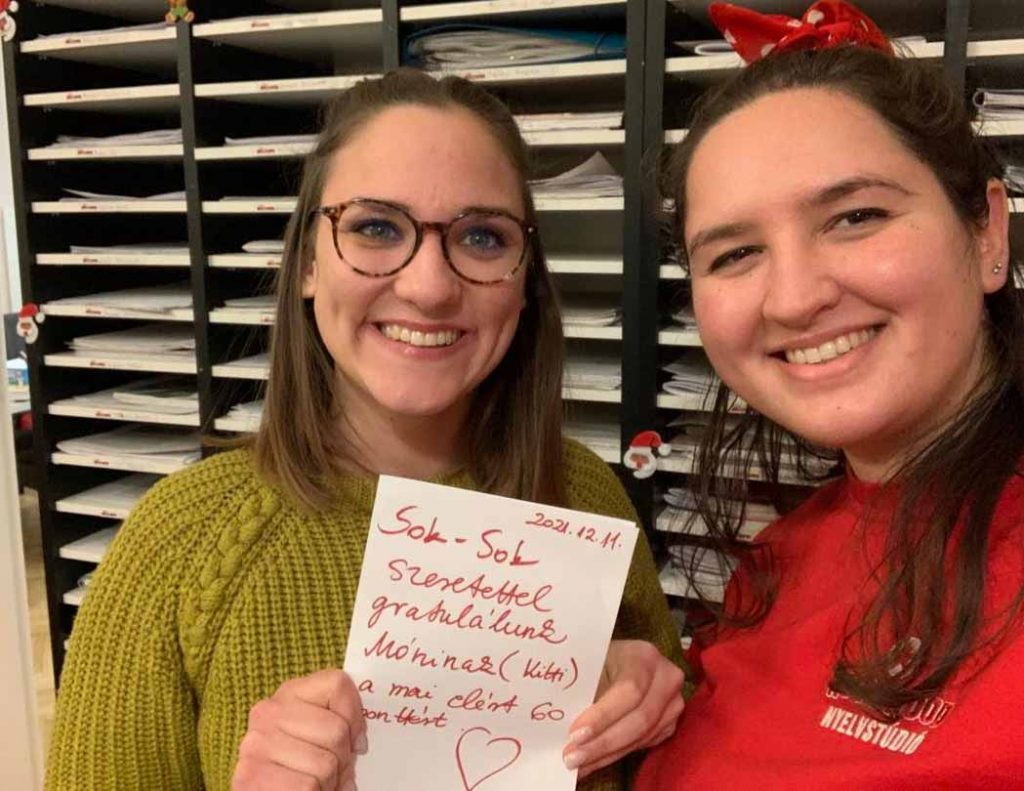 2021.12.11.
Sok - Sok
szeretettel
gratulálunk
Móninak (Kitti)
a mai elért 60
ponttért
NYELVSTÚDIÓ